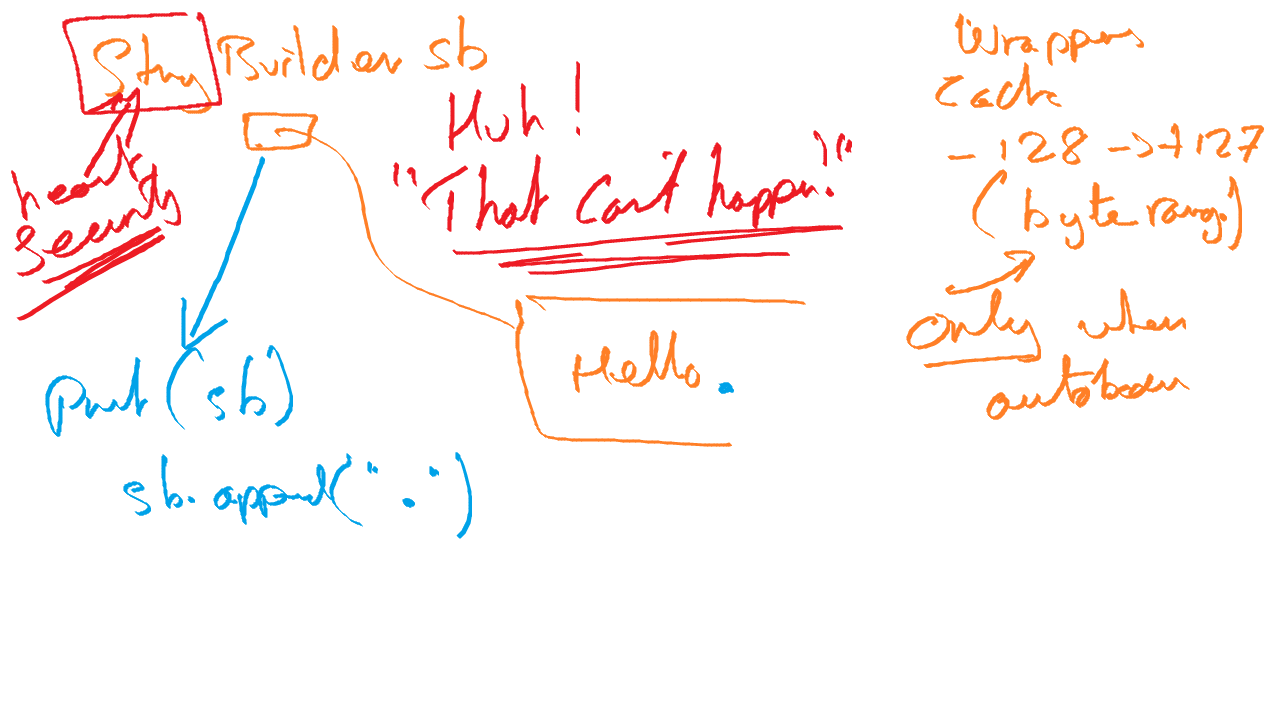 String Builder sb
heart
Security
Huh!
"That can't happen!"
Hello.
print(sb)
sb.append(".")
Wrappers
Cache
-128 -> +127
(byte range)
only when